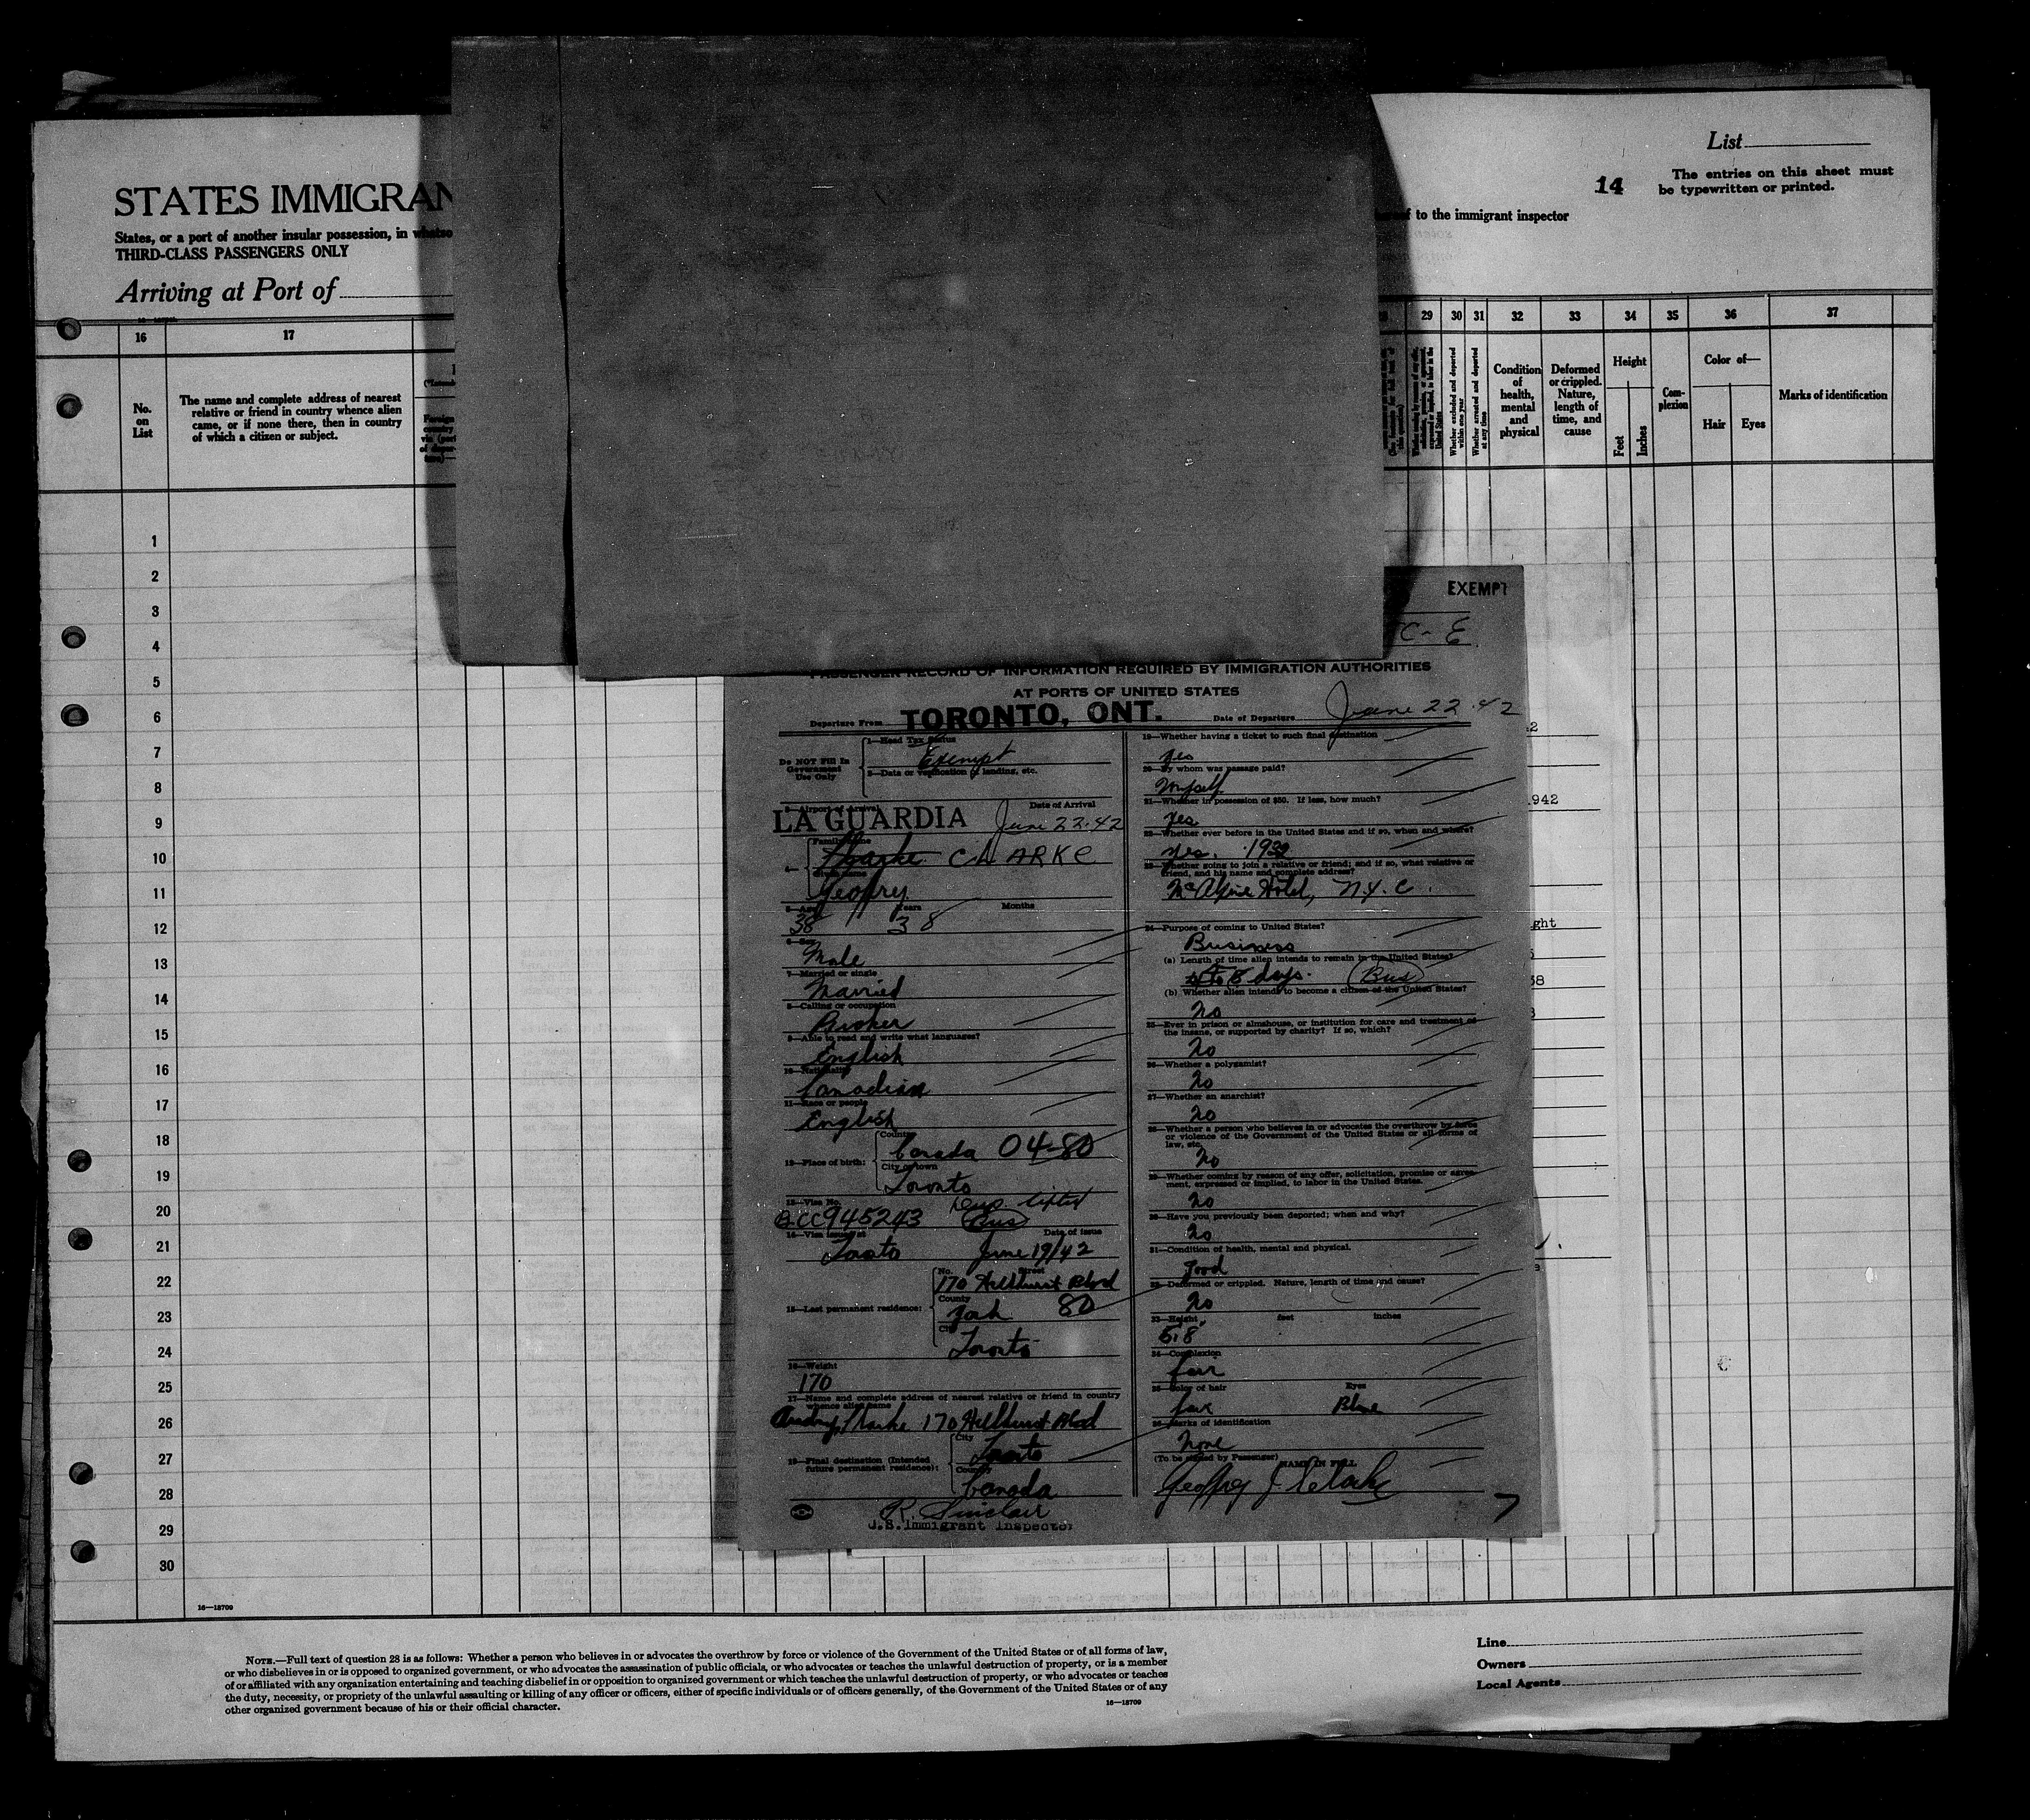 List
14
The entries on this sheet must
be typewritten or printed.
STATES IMMIGRAN
to the immigrant inspector
States, or a port of another insular possession, in whatso
THIRD-CLASS PASSENGERS ONLY
Arriving at Port of
16
17
29
30
31
32
33
34
35
36
37
No.
on
List
The name and complete address of nearest
relative or friend in country whence alien
came, or if none there, then in country
of which a citizen or subject.
Whether excluded and deported
within one year
Whether arrested and deported
at any time
Condition
of
health,
mental
and
physical
Deformed
or crippled.
Nature,
length of
time, and
cause
Height
Feet
Inches
Com-
plexion
Color of—
Hair
Eyes
Marks of identification
1
2
3
4
5
6
7
8
9
10
11
12
13
14
15
16
17
18
19
20
21
22
23
24
25
26
27
28
29
30
EXEMPT
TC- E
PASSENGER RECORD OF INFORMATION REQUIRED BY IMMIGRATION AUTHORITIES
AT PORTS OF UNITED STATES
Departure From TORONTO, ONT. Date of Departure June 22.42
Do NOT Fill In
Government
Use Only
1—Head Tax Status
Exempt
2—Data or verification of landing, etc.
3—Airport of Arrival Date of Arrival
LA GUARDIA June 22.42
4—
Family name
Clarke CLARKE
Given name
Geoffry
5—Age Years Months
38 38
6—Sex
Male
7—Married or single
Married
8—Calling or occupation
Broker
9—Able to read and write what languages?
English
10—Nationality
Canadian
11—Race or people
English
12—Place of birth:
Country
Canada 04-80
City or town
Toronto
13—Visa No. Dup. lifted
CC945243 Bus
14—Visa issued at Date of issue
Toronto June 19/42
15—Last permanent residence:
No. Street
170 Hillhurst Blvd
County
York 80
City
Toronto
16—Weight
170
17—Name and complete address of nearest relative or friend in country
whence alien came
Audrey Clarke 170 Hillhurst Blvd
18—Final destination (Intended
future permanent residence):
City
Toronto
Country
Canada
R. Sinclair
U.S. Immigrant Inspector
19—Whether having a ticket to such final destination
Yes
20—By whom was passage paid?
Myself
21—Whether in possession of $50. If less, how much?
Yes
22—Whether ever before in the United States and if so, when and where?
Yes. 1932
23—Whether going to join a relative or friend; and if so, what relative or
friend, and his name and complete address?
McAlpine Hotel, N.Y.C.
24—Purpose of coming to United States?
Business
(a) Length of time alien intends to remain in the United States?
to 8 days. Bus
(b) Whether alien intends to become a citizen of the United States?
No
25—Ever in prison or almshouse, or institution for care and treatment of
the insane, or supported by charity? If so, which?
No
26—Whether a polygamist?
No
27—Whether an anarchist?
No
28—Whether a person who believes in or advocates the overthrow by force
or violence of the Government of the United States or all forms of
law, etc.
No
29—Whether coming by reason of any offer, solicitation, promise or agree-
ment, expressed or implied, to labor in the United States.
No
30—Have you previously been deported; when and why?
No
31—Condition of health, mental and physical.
Good
32—Deformed or crippled. Nature, length of time and cause?
No
33—Height feet inches
5.8
34—Complexion
fair
35—Color of hair Eyes
fair Blue
36—Marks of identification
None
(To be signed by Passenger) NAME IN FULL
Geoffrey J. Clarke
7
942
ght
58
16—18709
NOTE.—Full text of question 28 is as follows: Whether a person who believes in or advocates the overthrow by force or violence of the Government of the United States or of all forms of law,
or who disbelieves in or is opposed to organized government, or who advocates the assassination of public officials, or who advocates or teaches the unlawful destruction of property, or is a member
of or affiliated with any organization entertaining and teaching disbelief in or opposition to organized government or which teaches the unlawful destruction of property, or who advocates or teaches
the duty, necessity, or propriety of the unlawful assaulting or killing of any officer or officers, either of specific individuals or of officers generally, of the Government of the United States or of any
other organized government because of his or their official character.
16—18709
Line
Owners
Local Agents